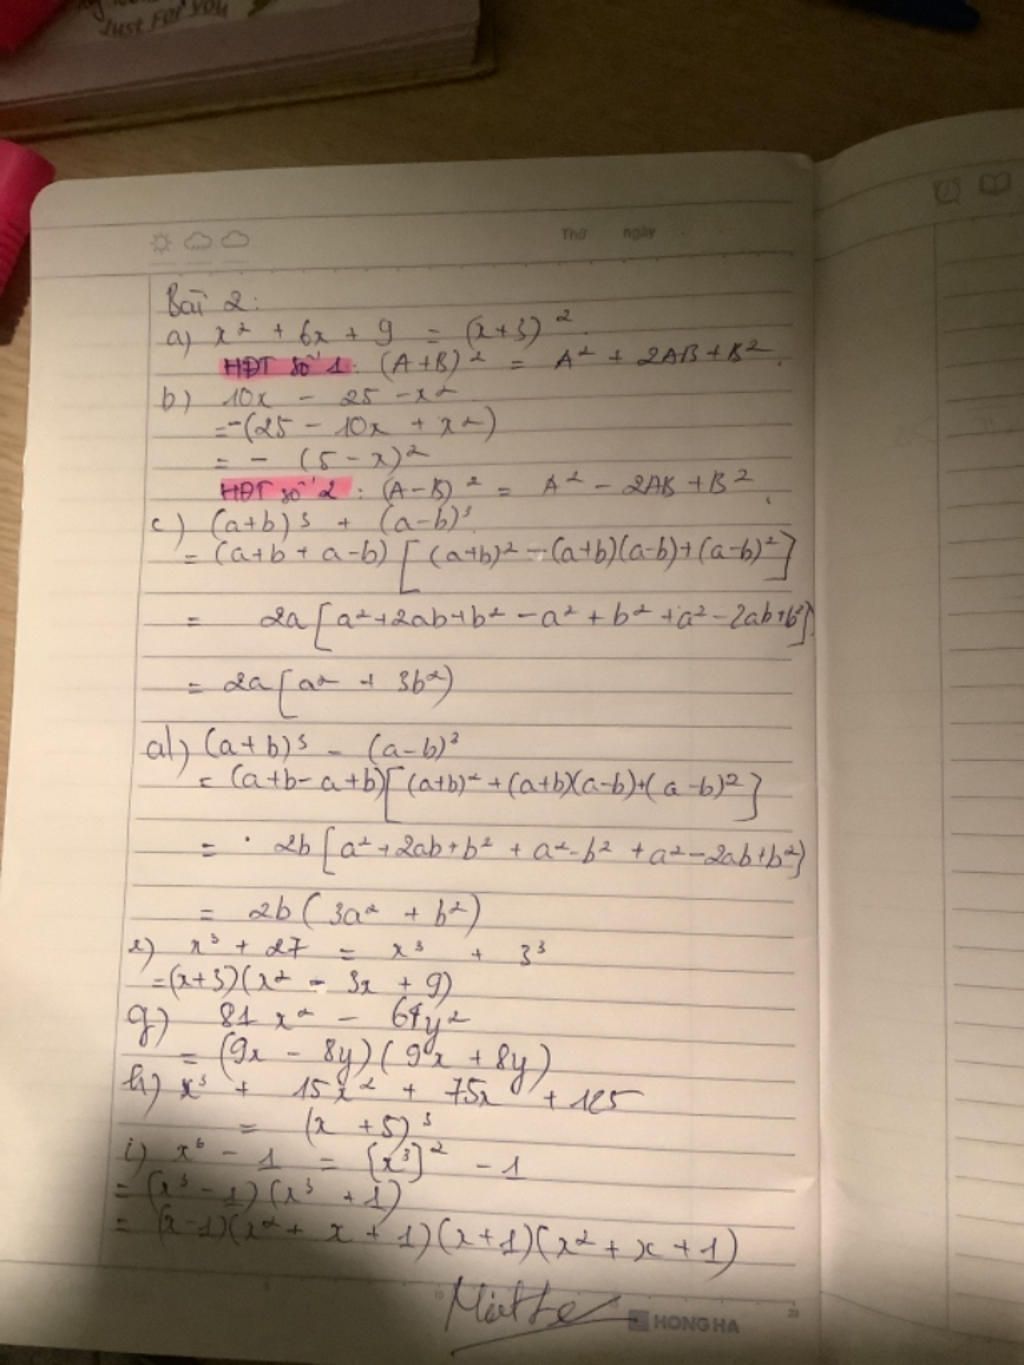 Just For You
Thứ ngày
Bài 2:
a) x² + 6x + 9 = (x+3)²
HĐT số 1: (A+B)² = A² + 2AB + B².
b) 10x - 25 - x²
= -(25 - 10x + x²)
= - (5 - x)²
HĐT số 2: (A-B)² = A² - 2AB + B².
c) (a+b)³ + (a-b)³
= (a+b + a-b) [(a+b)² - (a+b)(a-b) + (a-b)²]
= 2a [a² + 2ab + b² - a² + b² + a² - 2ab + b²]
= 2a [a² + 3b²)
d) (a+b)³ - (a-b)³
= (a+b - a+b) [(a+b)² + (a+b)(a-b) + (a-b)²]
= 2b [a² + 2ab + b² + a² - b² + a² - 2ab + b²)
= 2b (3a² + b²)
e) x³ + 27 = x³ + 3³
= (x+3)(x² - 3x + 9)
g) 81x² - 64y²
= (9x - 8y)(9x + 8y)
h) x³ + 15x² + 75x + 125
= (x + 5)³
i) x⁶ - 1 = [x³]² - 1
= (x³ - 1)(x³ + 1)
= (x-1)(x² + x + 1)(x+1)(x² + x + 1)
HONG HA